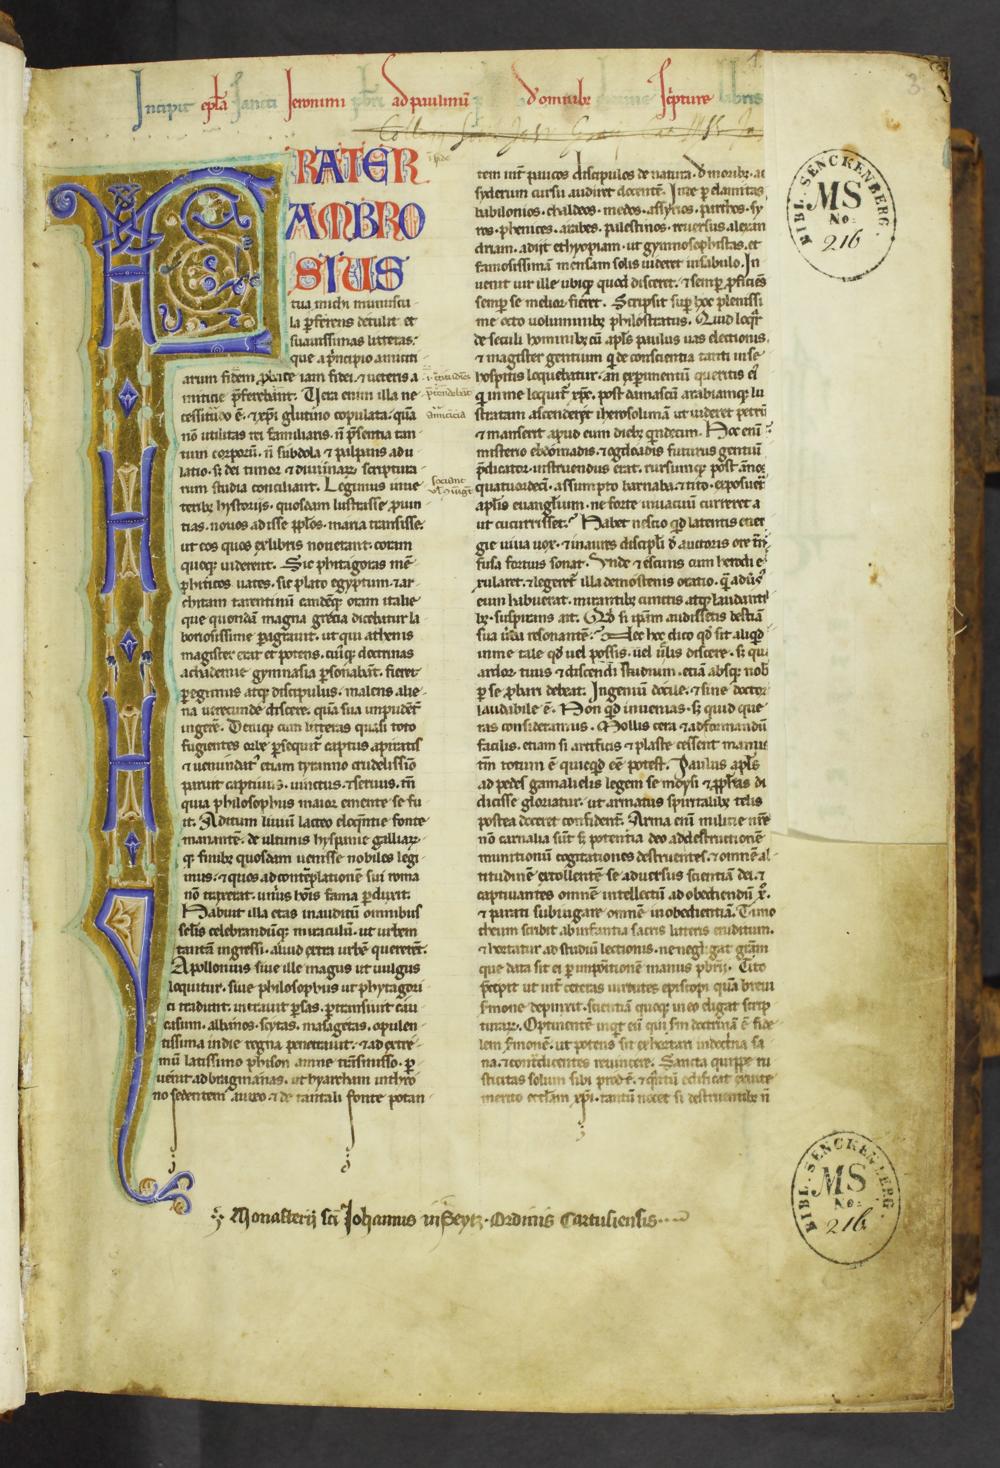 Incipit epl̄a sancti Ieronimi pbr̄i ad paulinū d' omnibꝫ diuine scpture libris
3
FRATER
AMBRO
SIUS
tua michi munuscu-
la p̄ferens detulit et
suauissimas litteras·
que a p̄ncipio amiciti-
arum fidem ꝓbate iam fidei· ⁊ ueteris a-
micitie p̄ferebant. Uera enim illa ne-
cessitudo ē· ⁊ xp̄i glutino copulata· quā
nō utilitas rei familiaris· n̄ p̄sentia tan-
tum corporū· n̄ subdola ⁊ palpans adu-
latio· sꝫ dei timor ⁊ diuinarꝝ scriptura-
rum studia conciliant. Legimus in ue-
teribꝫ hystoriis· quosdam lustrasse ꝓuin-
tias· nouos adisse pp̄los· maria transisse·
ut eos quos ex libris nouerant· coram
quoqꝫ uiderent. Sic phitagoras mē-
phiticos uates· sic plato egyptum· ⁊ ar-
chitam tarentinū eandēqꝫ oram italie
que quondā magna grecia dicebatur la-
boriosissime ꝑagrauit· ut qui athenis
magister erat et potens· cuiꝰqꝫ doctrinas
achademie gymnasia ꝑsonabāt· fieret
ꝑegrinus atqꝫ discipulus· malens alie-
na uerecunde discere· quā sua impudent̄
ingere. Deniqꝫ cum litteras quasi toto
fugientes orbe ꝑsequit᷑ captus a piratis
⁊ uenundatꝰ etiam tyranno crudelissimo
paruit captiuus· uinctus· ⁊ seruus· tn̄
quia philosophus maior emente se fu-
it. Ad titum liuiū lacteo eloquētie fonte
manantē· de ultimis hyspanie galliarꝝ-
qꝫ finibꝫ quosdam uenisse nobiles legi-
mus· ⁊ quos ad contēplationē sui roma
nō traxerat· unius hoīs fama ꝑduxit.
Habuit illa etas inauditū omnibus
sclis celebrandūqꝫ miraculū· ut urbem
tantā ingressi· aliud extra urbē quererēt.
Apollonius siue ille magus ut uulgus
loquitur· siue philosophus ut phytagori-
ci tradunt· intrauit ꝑsas· ꝑtransiuit cau-
casum· albanos· scytas· masagetas· opulen-
tissima indie regna penetrauit· ⁊ ad extre-
mū latissimo phison amne trāsmisso· ꝑ-
uenit ad bragmanas· ut hyarcham in thro-
no sedentem aureo ⁊ de tantali fonte potan-
tem int̄ paucos discipulos de natura· d' monibꝫ· ac
syderum cursu audiret docentē. Inde ꝑ elamitas
babilonios· chaldeos· medos· assyrios· parthos· sy-
ros· phenices· arabes· palestinos· reuersus alexan-
driam· adiit ethyopiam· ut gymnosophistas· et
famosissimā mensam solis uideret in sabulo. In-
uenit uir ille ubiqꝫ quod disceret· ⁊ semꝑ ꝓficiēs
semꝑ se melior fieret. Scripsit suꝑ hoc plenissi-
me octo uoluminibꝫ philostratus. Quid loqr̄
de seculi hominibꝫ cū apl̄s paulus uas electionis
⁊ magister gentium q̄ de conscientia tanti in se
hospitis loquebatur· an experimentū queritis eiꝰ
q̄ in me loquit᷑ xp̄c· post damascū arabiamqꝫ lu-
stratam ascenderit iherosolimā ut uideret petrū
⁊ manserit apud eum diebꝫ quindecim. Hoc enī
misterio ebdomadis· ⁊ ogdoadis futurus gentiū
p̄dicator instruendus erat. rursumqꝫ post annos
quatuordecī· assumpto barnaba ⁊ tito· exposuerit
apl̄is euangl̄ium· ne forte in uacuū curreret a-
ut cucurrisset. Habet nescio qd latentis ener-
gie uiua uox· ⁊ in aures discipl̄i d' auctoris ore trās-
fusa fortius sonat. Unde ⁊ escinis cum herodi e-
xularet· ⁊ legeret᷑ illa demostenis oratio· q̄ aduersꝰ
eum habuerat· mirantibꝫ cunctis atqꝫ laudanti-
bꝫ· suspirans ait. Qd si ip̄am audissetis bestiā
sua uerba resonantē. Nec hoc dico qd sit aliqd
in me tale qd uel possis· uel uelis discere· sꝫ quo
ardor tuus ⁊ discendi studium· etiā absqꝫ nob̄
ꝑ se ꝓbari debeat. Ingeniū docile· ⁊ sine doctore
laudabile ē. Non qd inuenias· sꝫ quid que-
ras consideramus. Mollis cera ⁊ ad formandū
facilis· etiam si artificis ⁊ plaste cessent manus
tn̄ totum ē quicqd eē potest. Paulus apl̄s
ad pedes gamalielis legem se moysi ⁊ ꝓphetas di-
dicisse gloriatur· ut armatus spiritalibꝫ telis
postea doceret confident̄. Arma enī militie nr̄e
nō carnalia sūt sꝫ potentia deo ad destructionē
munitionū cogitationes destruentes· ⁊ omnē al-
titudinē extollentē se aduersus scientiā dei· ⁊
captiuantes omnē intellectū ad obediendū x̄p̄o·
⁊ parati subiugare omnē inobedientiā. Timo-
theum scribit ab infantia sacris litteris eruditum·
⁊ hortatur ad studiū lectionis· ne negligat gr̄am
que data sit ei ꝑ impositionē manus pbr̄ii. Tito
p̄cepit ut int̄ ceteras uirtutes episcopi quā breui
sermone depinxit· scientiā quoqꝫ in eo eligat scrip-
turarꝝ. Optinentē inqt eū qui scd̄m doctrinā ē fide-
lem sermonē· ut potens sit exhortari in doctrina sa-
na· ⁊ contradicentes reuincere. Sancta quippe ru-
sticitas solum sibi prodest· ⁊ quātū edificat ex uite
merito eccl̄iam xp̄i· tantū nocet si destruentibꝫ n̄
Monasterij sc̄i Johannis in Seytz· Ordinis Cartusiensis
BIBL. SENCKENBERG.
MS
No:
216
BIBL. SENCKENBERG.
MS
No:
216